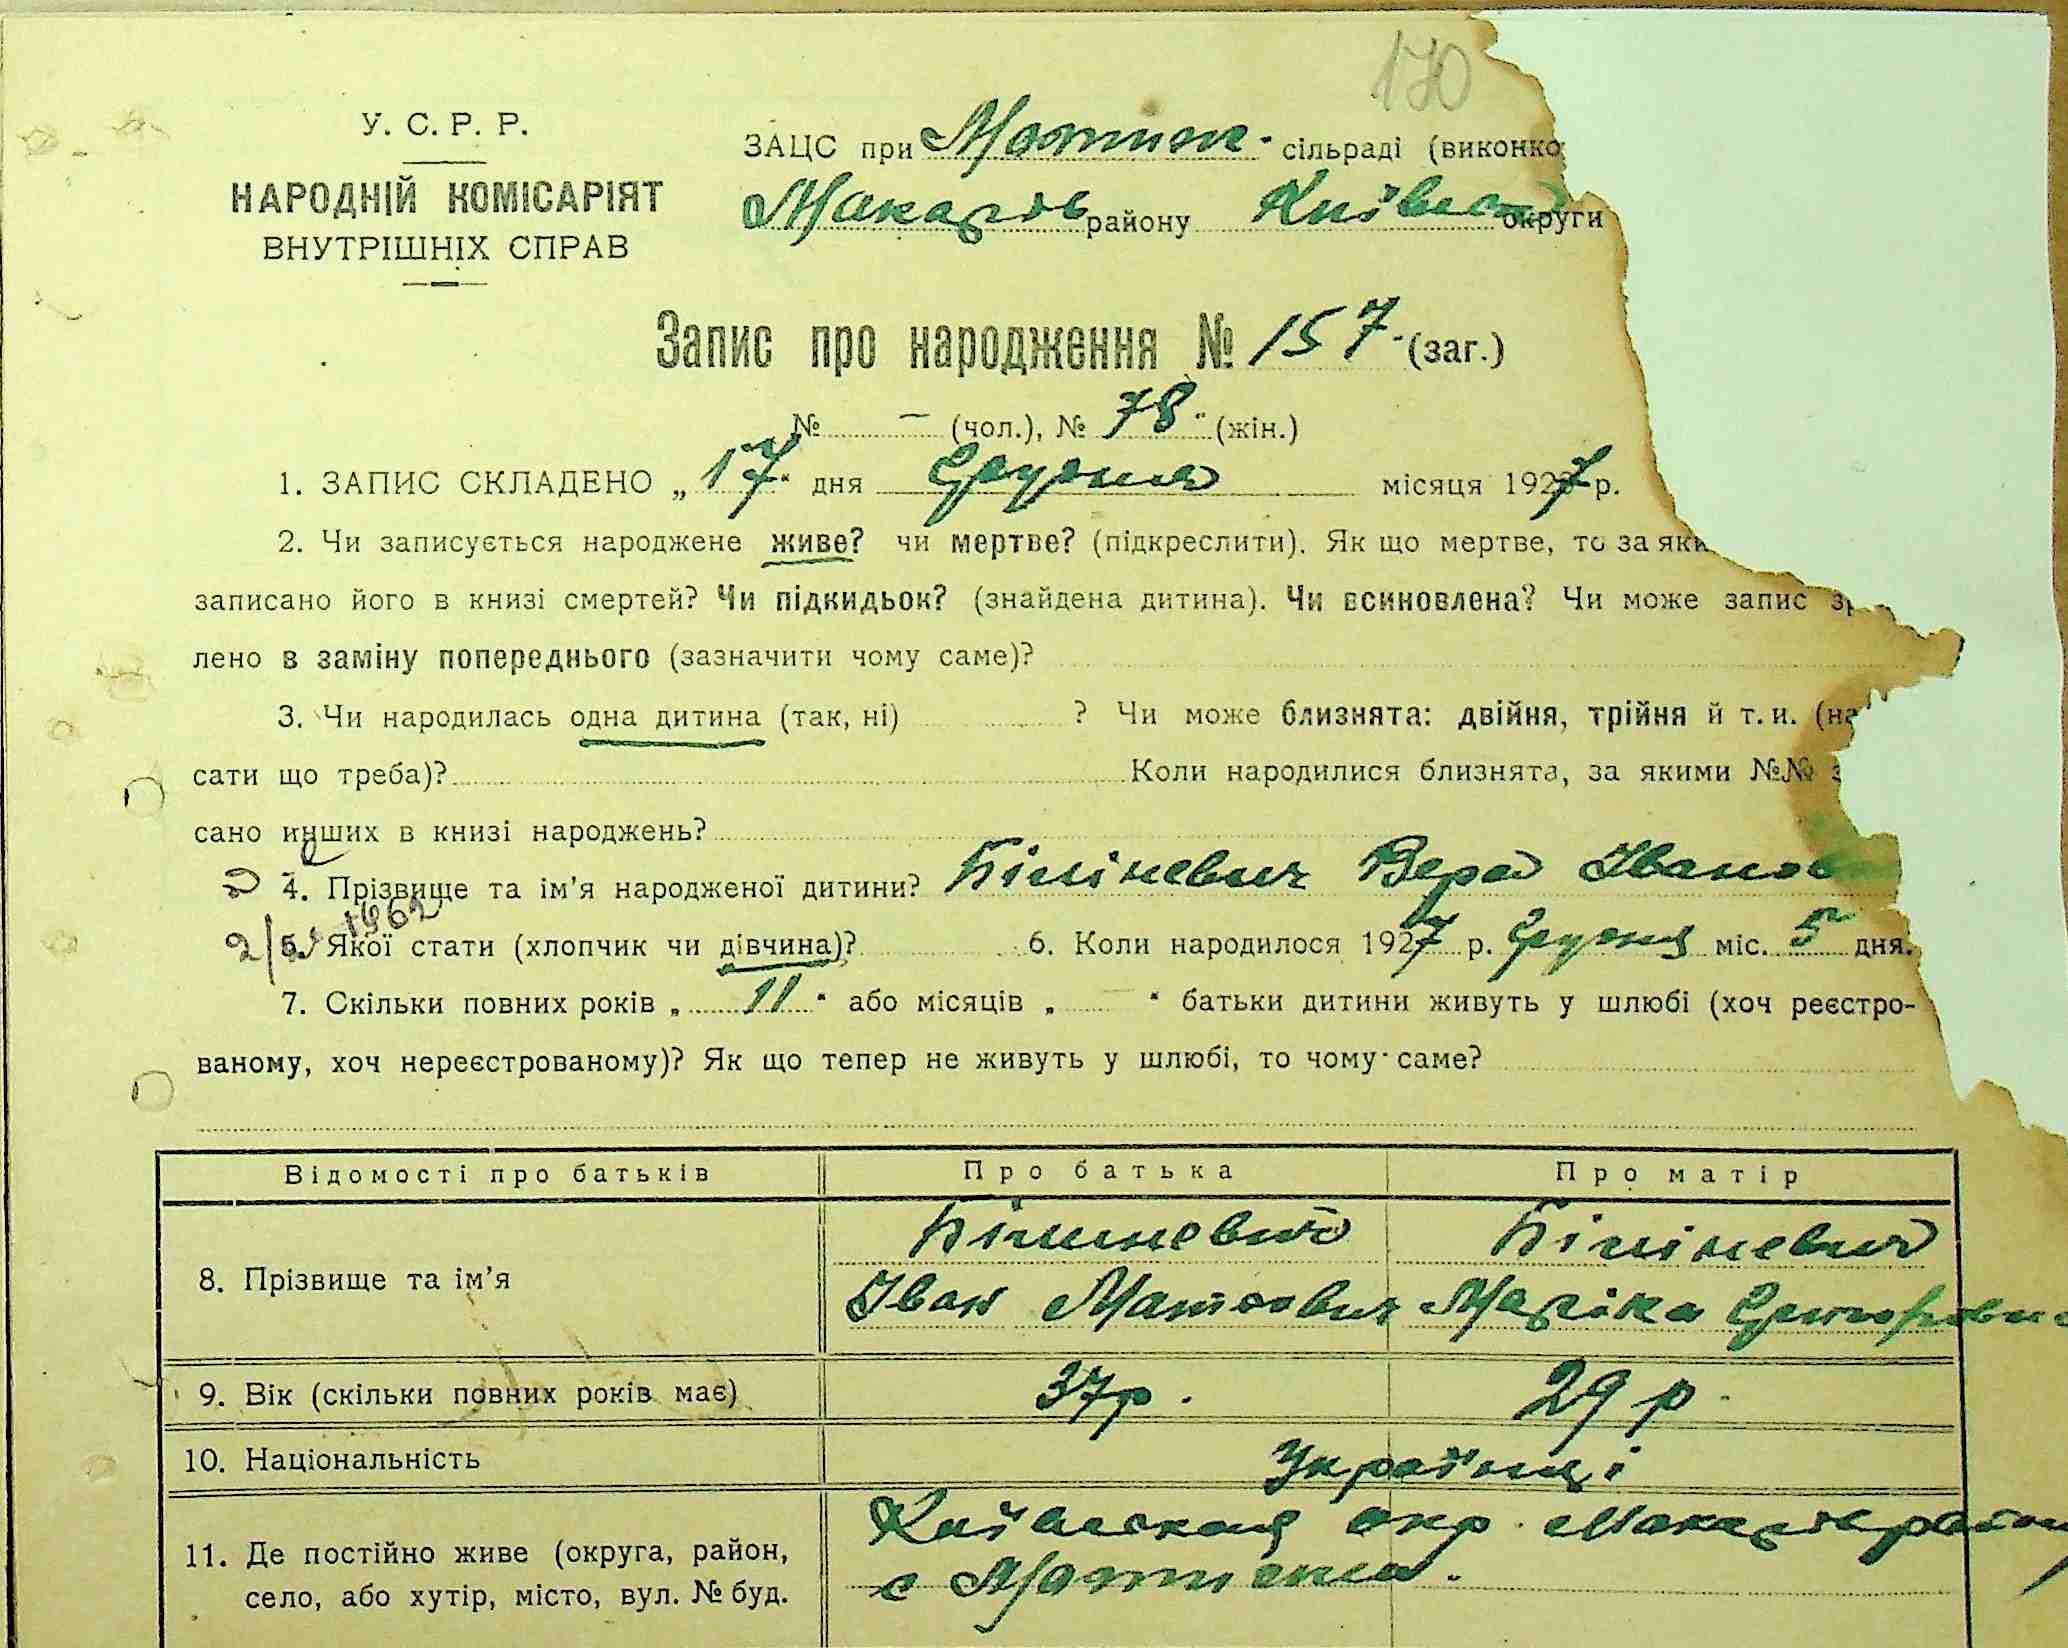 170
У. С. Р. Р.
НАРОДНІЙ КОМІСАРІЯТ
ВНУТРІШНІХ СПРАВ
ЗАЦС при Мотиж. сільраді (виконко
Макарів району Київської округи
Запис про народження № 157 (заг.)
№ — (чол.), № 78 (жін.)
1. ЗАПИС СКЛАДЕНО „17“ дня Грудня місяця 1927 р.
2. Чи записується народжене живе? чи мертве? (підкреслити). Як що мертве, то за яки
записано його в книзі смертей? Чи підкидьок? (знайдена дитина). Чи всиновлена? Чи може запис зр
лено в заміну попереднього (зазначити чому саме)?
3. Чи народилась одна дитина (так, ні) ? Чи може близнята: двійня, трійня й т. и. (на
сати що треба)? Коли народилися близнята, за якими №№ з
сано инших в книзі народжень?
4. Прізвище та ім’я народженої дитини? Біліневич Вера Іванов
5. Якої стати (хлопчик чи дівчина)? 6. Коли народилося 1927 р. Грудня міс. 5 дня.
7. Скільки повних років „ 11 “ або місяців „ — “ батьки дитини живуть у шлюбі (хоч реєстро-
ваному, хоч нереєстрованому)? Як що тепер не живуть у шлюбі, то чому саме?
Відомості про батьків Про батька Про матір
8. Прізвище та ім’я Біліневич Біліневич
Іван Матвович Маріка
9. Вік (скільки повних років має) 37р. 29 р.
10. Національність Українці
11. Де постійно живе (округа, район, Київская окр. Макарів район
село, або хутір, місто, вул. № буд. с Мотижин.